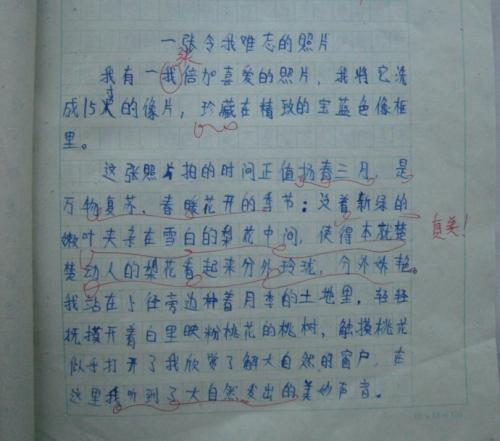 一张令我难忘的照片
我有一我倍加喜爱的照片，我将它洗
张
成15寸大的像片，珍藏在精致的宝蓝色像框
里。
这张照片拍的时间正值扬春三月，是
万物复苏、春暖花开的季节；没着新绿的
嫩叶夹杂在雪白的梨花中间，使得本就楚
楚动人的梨花看起来分外玲珑，分外妖艳。
真美！
我站在 旁边种着月季的土地里，轻轻
抚摸开着白里映粉桃花的桃树，触摸桃花
似乎打开了我欣赏了解大自然的窗户，在
这里我听到了大自然发出的美妙声音。